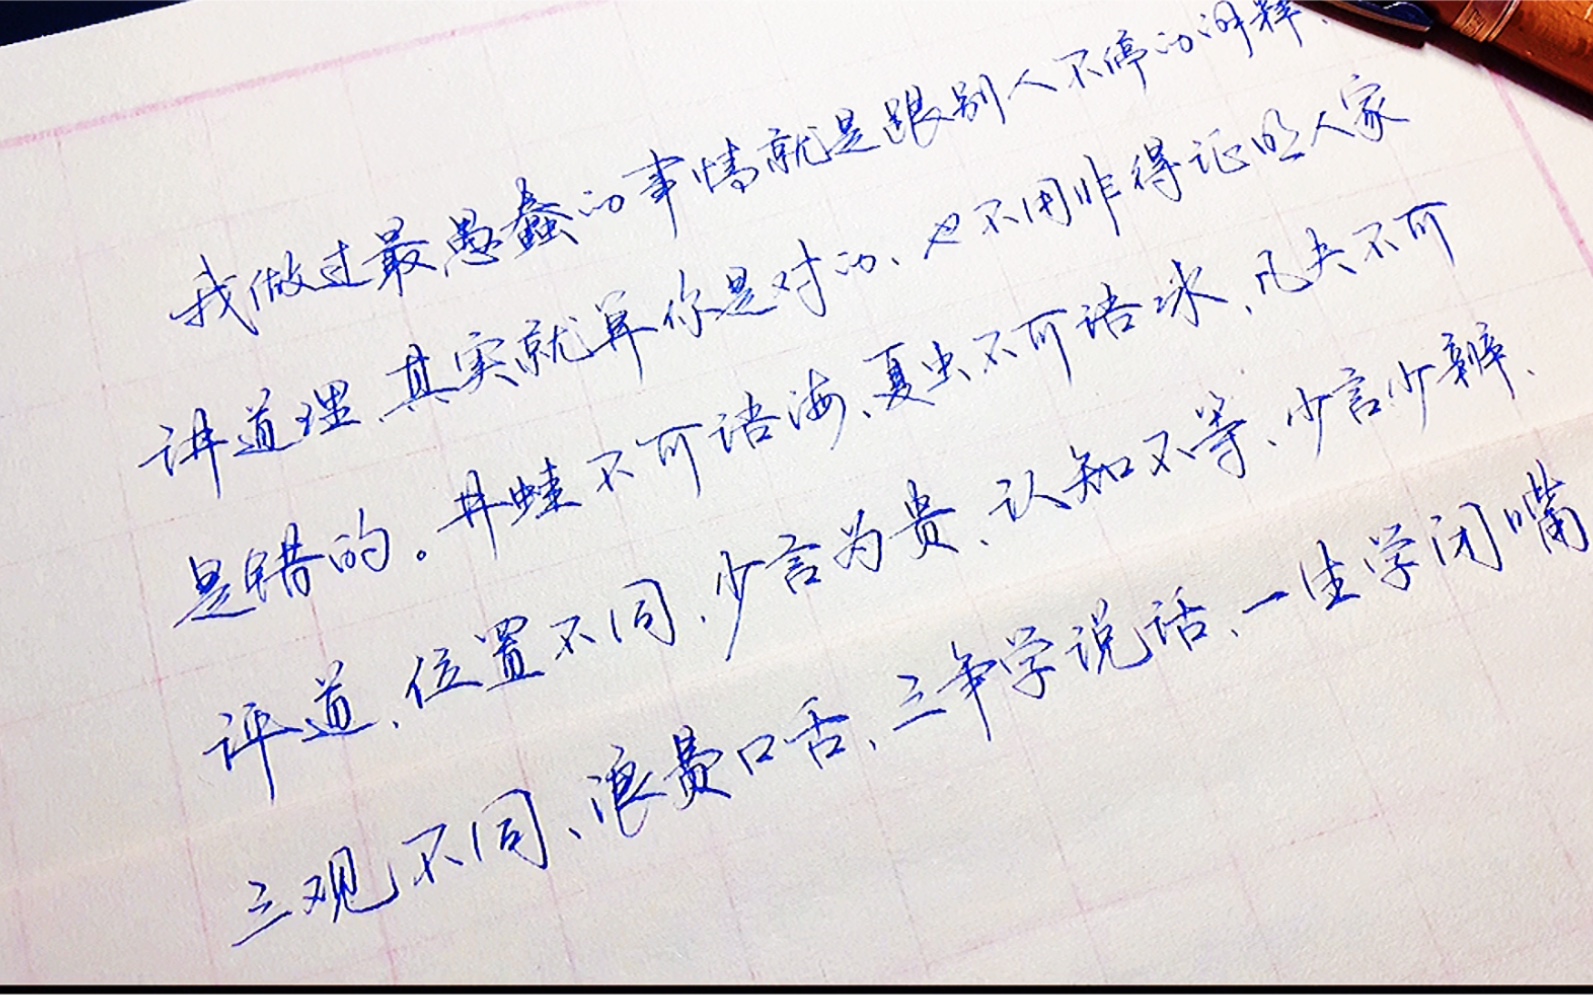 我做过最愚蠢的事情就是跟别人不停的讲释、
讲道理、其实就算你是对的、也不用非得证明人家
是错的。井蛙不可语海、夏虫不可语冰、凡夫不可
评道、位置不同、少言为贵、认知不等、少言少辨、
三观不同、浪费口舌、三年学说话、一生学闭嘴